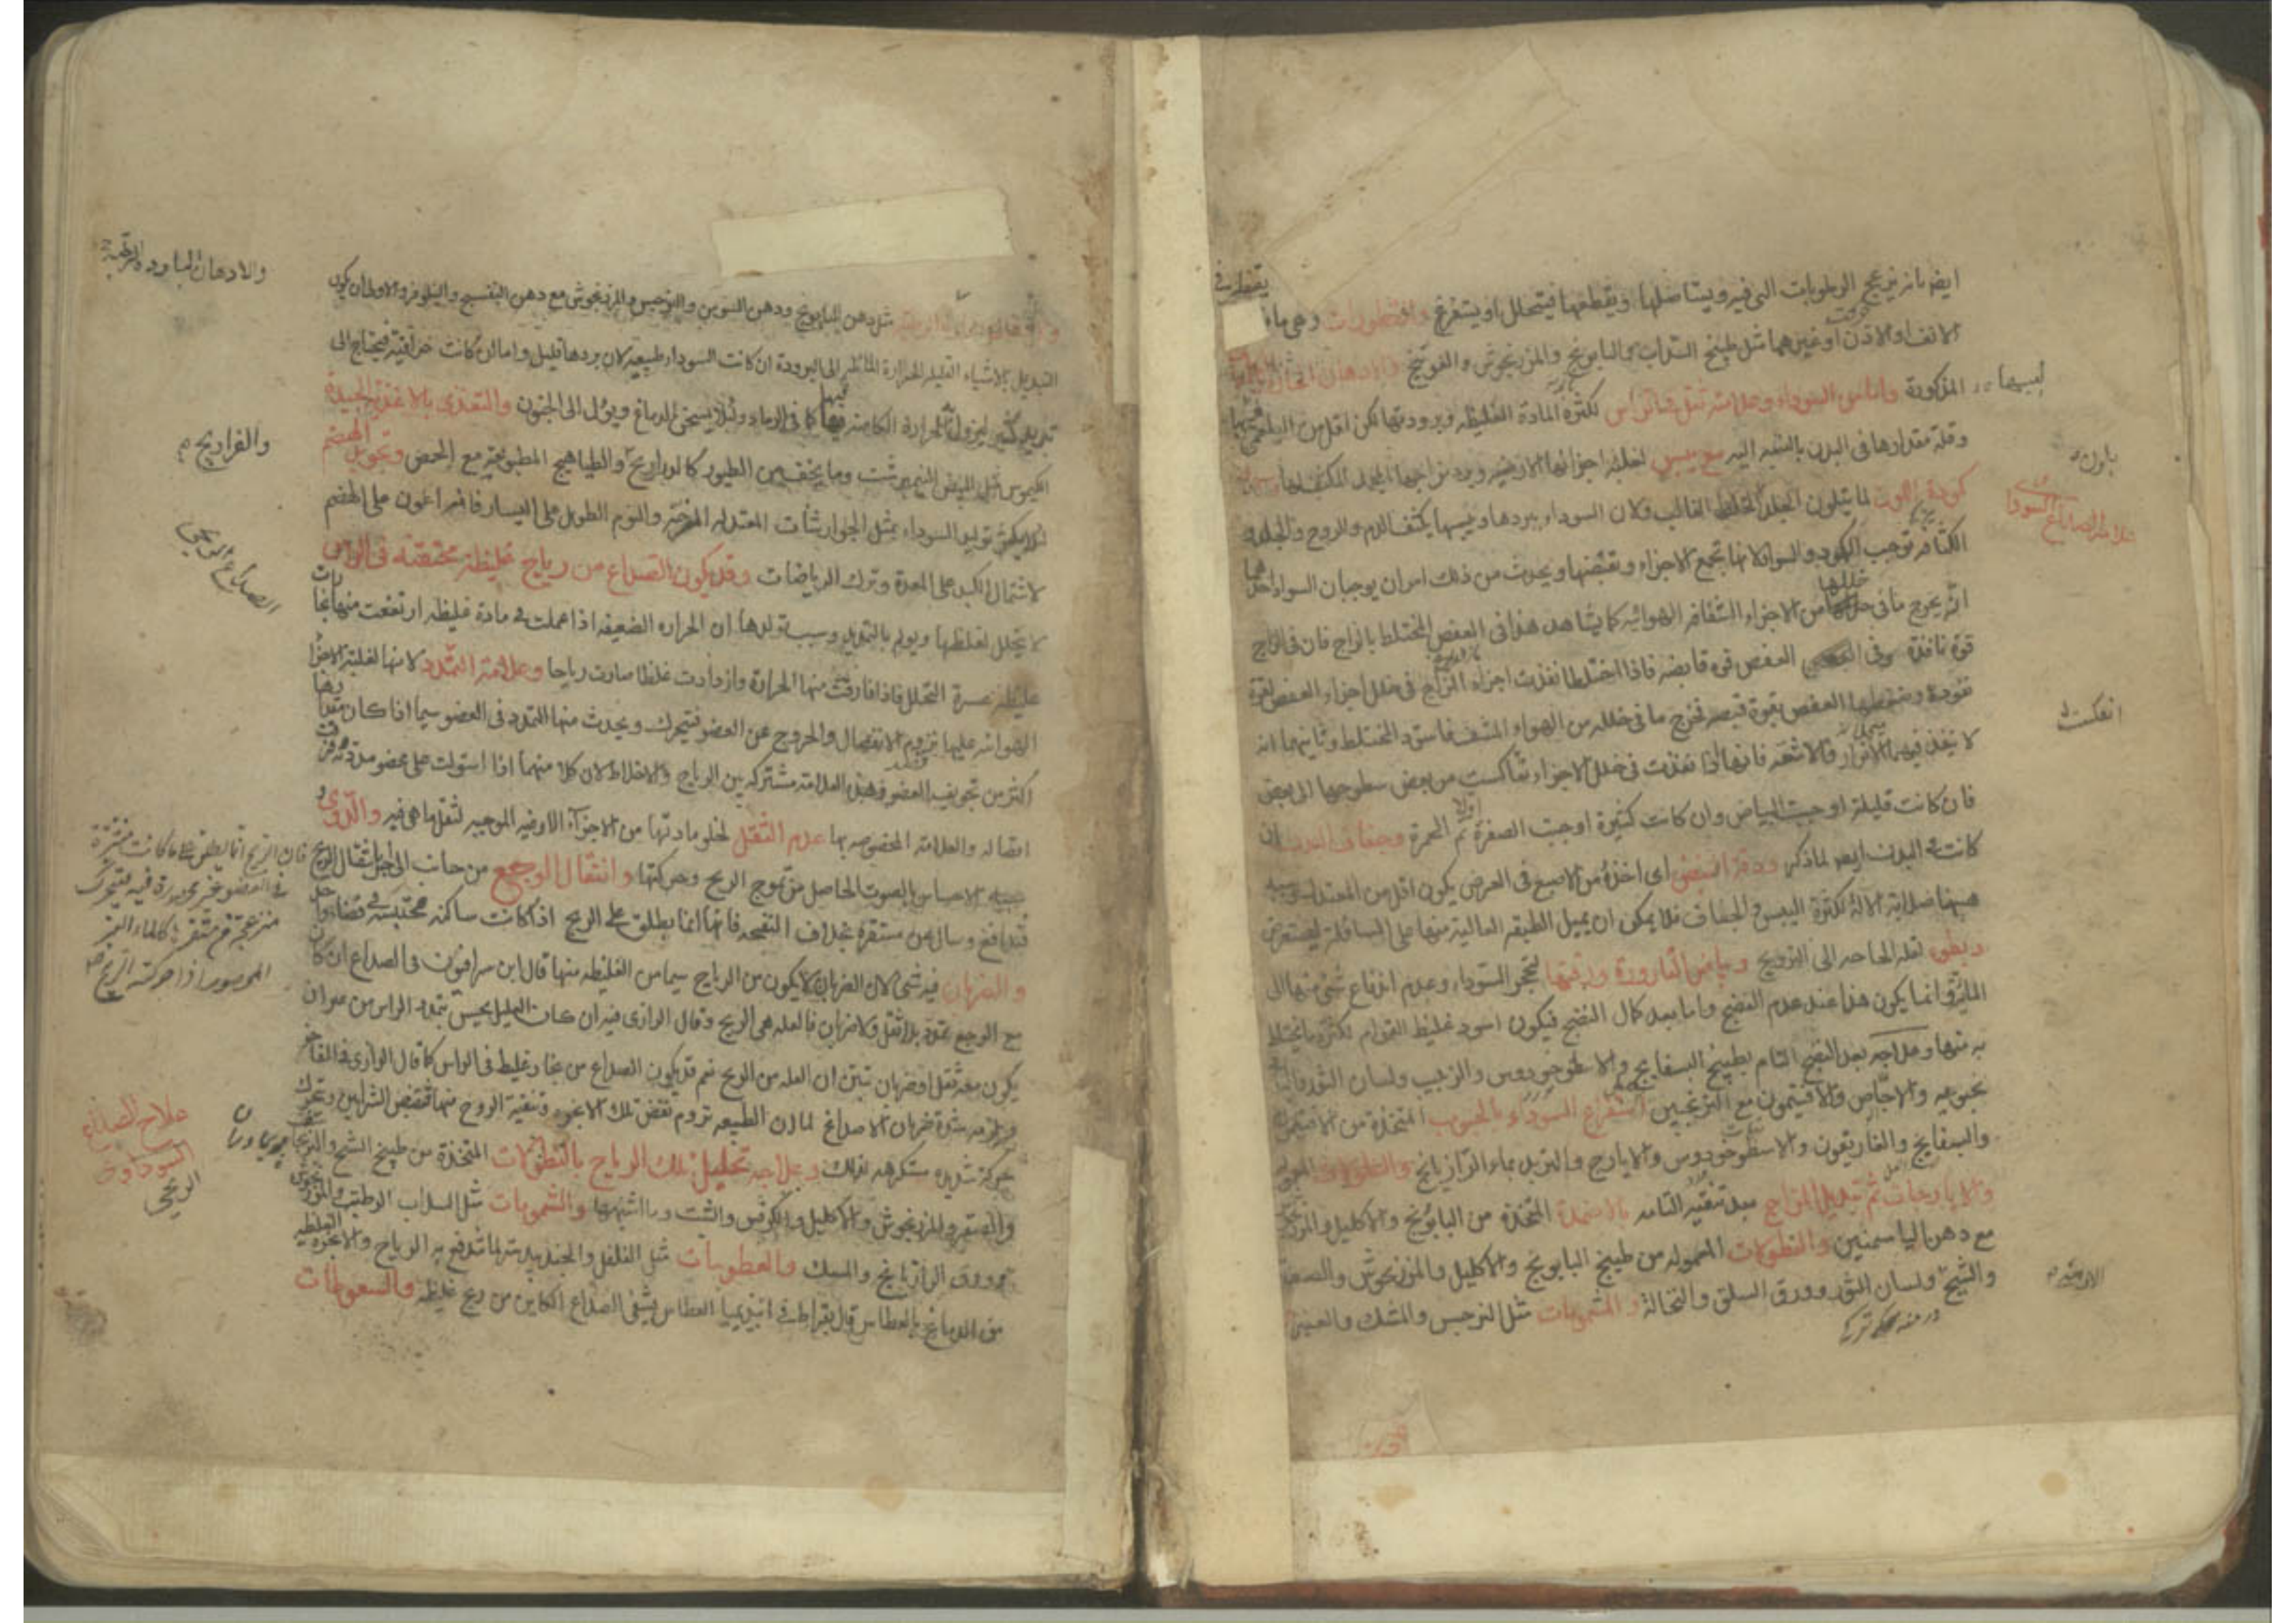 ايضا بانه يزعج الرطوبات التي فيه ويستاصلها ويقطعها فيتحلل او يستفرغ والقطورات وهي ما يقطر في
الانف او الاذن او غيرهما مثل طبيخ السداب والبابونج والمرزنجوش والفوتنج والادهان الحارة
المذكورة واما من السوداء وعلامته ثقل في الراس لكثرة المادة الغليظة وبرودتها لكن اقل من البلغمي
وقلة مقدارها في البدن بالنسبة اليه مع يبس لغلبة اجزائها الارضية وبرد مزاجها
كمودة اللون لما يتلون الجلد الخلط الغالب ولان السوداء ببردها ويبسها يكثف الدم والروح والجلد
الكثافة توجب الكمودة والسواد لانها تجمع الاجزاء وتقبضها ويحدث من ذلك امران يوجبان السواد احدهما
انه يخرج ما في خللها من الاجزاء الشفافة الهوائية كما يشاهد هذا في العفص المختلط بالزاج فان في الزاج
قوة نافذة وفي العفص قوة قابضة فاذا اختلطا نفذت اجزاء الزاج في خلل اجزاء العفص لقوة
نفوذه وضغطها العفص بقوة قبضه فخرج ما في خلله من الهواء المشف فاسود المختلط وثانيهما انه
لا ينفذ فيها الانوار والاشعة فانها اذا نفذت في خلل الاجزاء تعاكست من بعض سطوحها الى بعض
فان كانت قليلة اوجبت البياض وان كانت كثيرة اوجبت الصفرة اولا ثم الحمرة وجفاف البدن ان
كانت في البدن ايضا لما ذكر ودقة النبض اي اخذه من الاصبع في العرض يكون اقل من المعتدل وسببه
ههنا صلابة الآلة لكثرة اليبس والجفاف فلا يمكن ان يميل الطبقة العالية منها على السافلة ليستعرض
وبطؤه لقلة الحاجة الى الترويح وبياض القارورة ورقتها لتحجر السوداء وعدم اندفاع شيء منها الى
المائية وانما يكون هذا عند عدم النضج واما بعد كمال النضج فيكون اسود غليظ القوام لكثرة ما يختلط
به منها وعلاجه بعد النضج التام بطبيخ البسفايج والاسطوخودوس والزبيب ولسان الثور
والاجاص والافتيمون مع الترنجبين استفراغ السوداء بالحبوب المتخذة من الافتيمون
والبسفايج والغاريقون والاسطوخودوس والايارج والتربد بماء الرازيانج
والايارجات ثم تبديل المزاج بعد تنقية التامة بالاضمدة المتخذة من البابونج والاكليل
مع دهن الياسمين والنطولات المعمولة من طبيخ البابونج والاكليل والمرزنجوش والصعتر
والشيح ولسان الثور وورق السلق والنخالة والمشمومات مثل النرجس والمسك والعنبر
علامة الصداع السوداوي
انعكست
مثل دهن البابونج ودهن السوسن والنرجس والمرزنجوش مع دهن البنفسج والنيلوفر والاولى ان يكون
التبديل بالاشياء القليلة الحرارة المائلة الى البرودة ان كانت السوداء طبيعية لان بردها قليل واما ان كانت حراقية فيحتاج الى
تبريد كثير ليزول الحرارة الكامنة فيها كما في الرماد ولئلا يسخن الدماغ ويؤل الى الجنون والتغذي بالاغذية الجيدة
الكيموس مثل البيض النيمبرشت وما يخف من الطيور كالدراريج والطياهيج المطبوخة مع الحمص وتجويد الهضم
لئلا يكثر توليد السوداء بمثل الجوارشنات المعتدلة المرخية والنوم الطويل على اليسار فانه اعون على الهضم
لاشتمال الكبد على المعدة وترك الرياضات وقد يكون الصداع من رياح غليظة محتقنة في الراس
لا يتحلل لغلظها ويولم بالتمديد وسبب تولدها ان الحرارة الضعيفة اذا عملت في مادة غليظة ارتفعت منها بخارات
غليظة عسرة التحلل فاذا فارقت منها الحرارة وازدادت غلظا صارت رياحا وعلامته التمدد لانها لغلبة الاجزاء
الهوائية عليها تروم الانفصال والخروج عن العضو فيتحرك ويحدث منها التمدد في العضو سيما اذا كان مقدارها
اكثر من تجويف العضو وهذه العلامة مشتركة بين الرياح والاخلاط لان كلا منهما اذا استولت على عضو مددته وفرقت
اتصاله والعلامة المخصوصة بها عدم الثقل لخلو مادتها من الاجزاء الارضية الموجبة لثقل ما هي فيه والدوي
سببه الاحساس بالصوت الحاصل من تموج الريح وحركتها وانتقال الوجع من جانب الى جانب
وسال عن مستقره بخلاف النفخة فانها انما يطلق على الريح اذا كانت ساكنة محتبسة في فضاء واحد
والضربان فيه شيء لان الضربان لا يكون من الرياح سيما من الغليظة منها قال ابن سرافيون في الصداع ان كان
مع الوجع تمدد بلا ثقل ولا ضربان فالعلة هي الريح وقال الرازي فيه ان كان العليل يحس بتمدد الراس من غير ان
يكون معه ثقل او ضربان تبين ان العلة من الريح نعم قد يكون الصداع من بخار غليظ في الراس كما قال الرازي في الفاخر
ويلزمه شدة ضربان الاصداغ لما ان الطبيعة تروم نفض تلك الابخرة وتنقية الروح منها فتقبض الشرايين وتحرك
حركة شديدة مستكرهة لذلك وعلاجه تحليل تلك الرياح بالنطولات المتخذة من طبيخ الشيح
والصعتر والمرزنجوش والاكليل والكرفس والشبت وما اشبهها والشمومات مثل السداب الرطب والمرزنجوش
وورق الرازيانج والمسك والعطوسات مثل الفلفل والجندبيدستر لما تندفع به الرياح والابخرة الغليظة
من الدماغ بالعطاس قال بقراط في ابيديميا العطاس يشفي الصداع الكاين من ريح غليظة والسعوطات
والادهان الباردة الرطبة
والفراريج
الصداع الريحي
علاج الصداع
السوداوي
الريحي